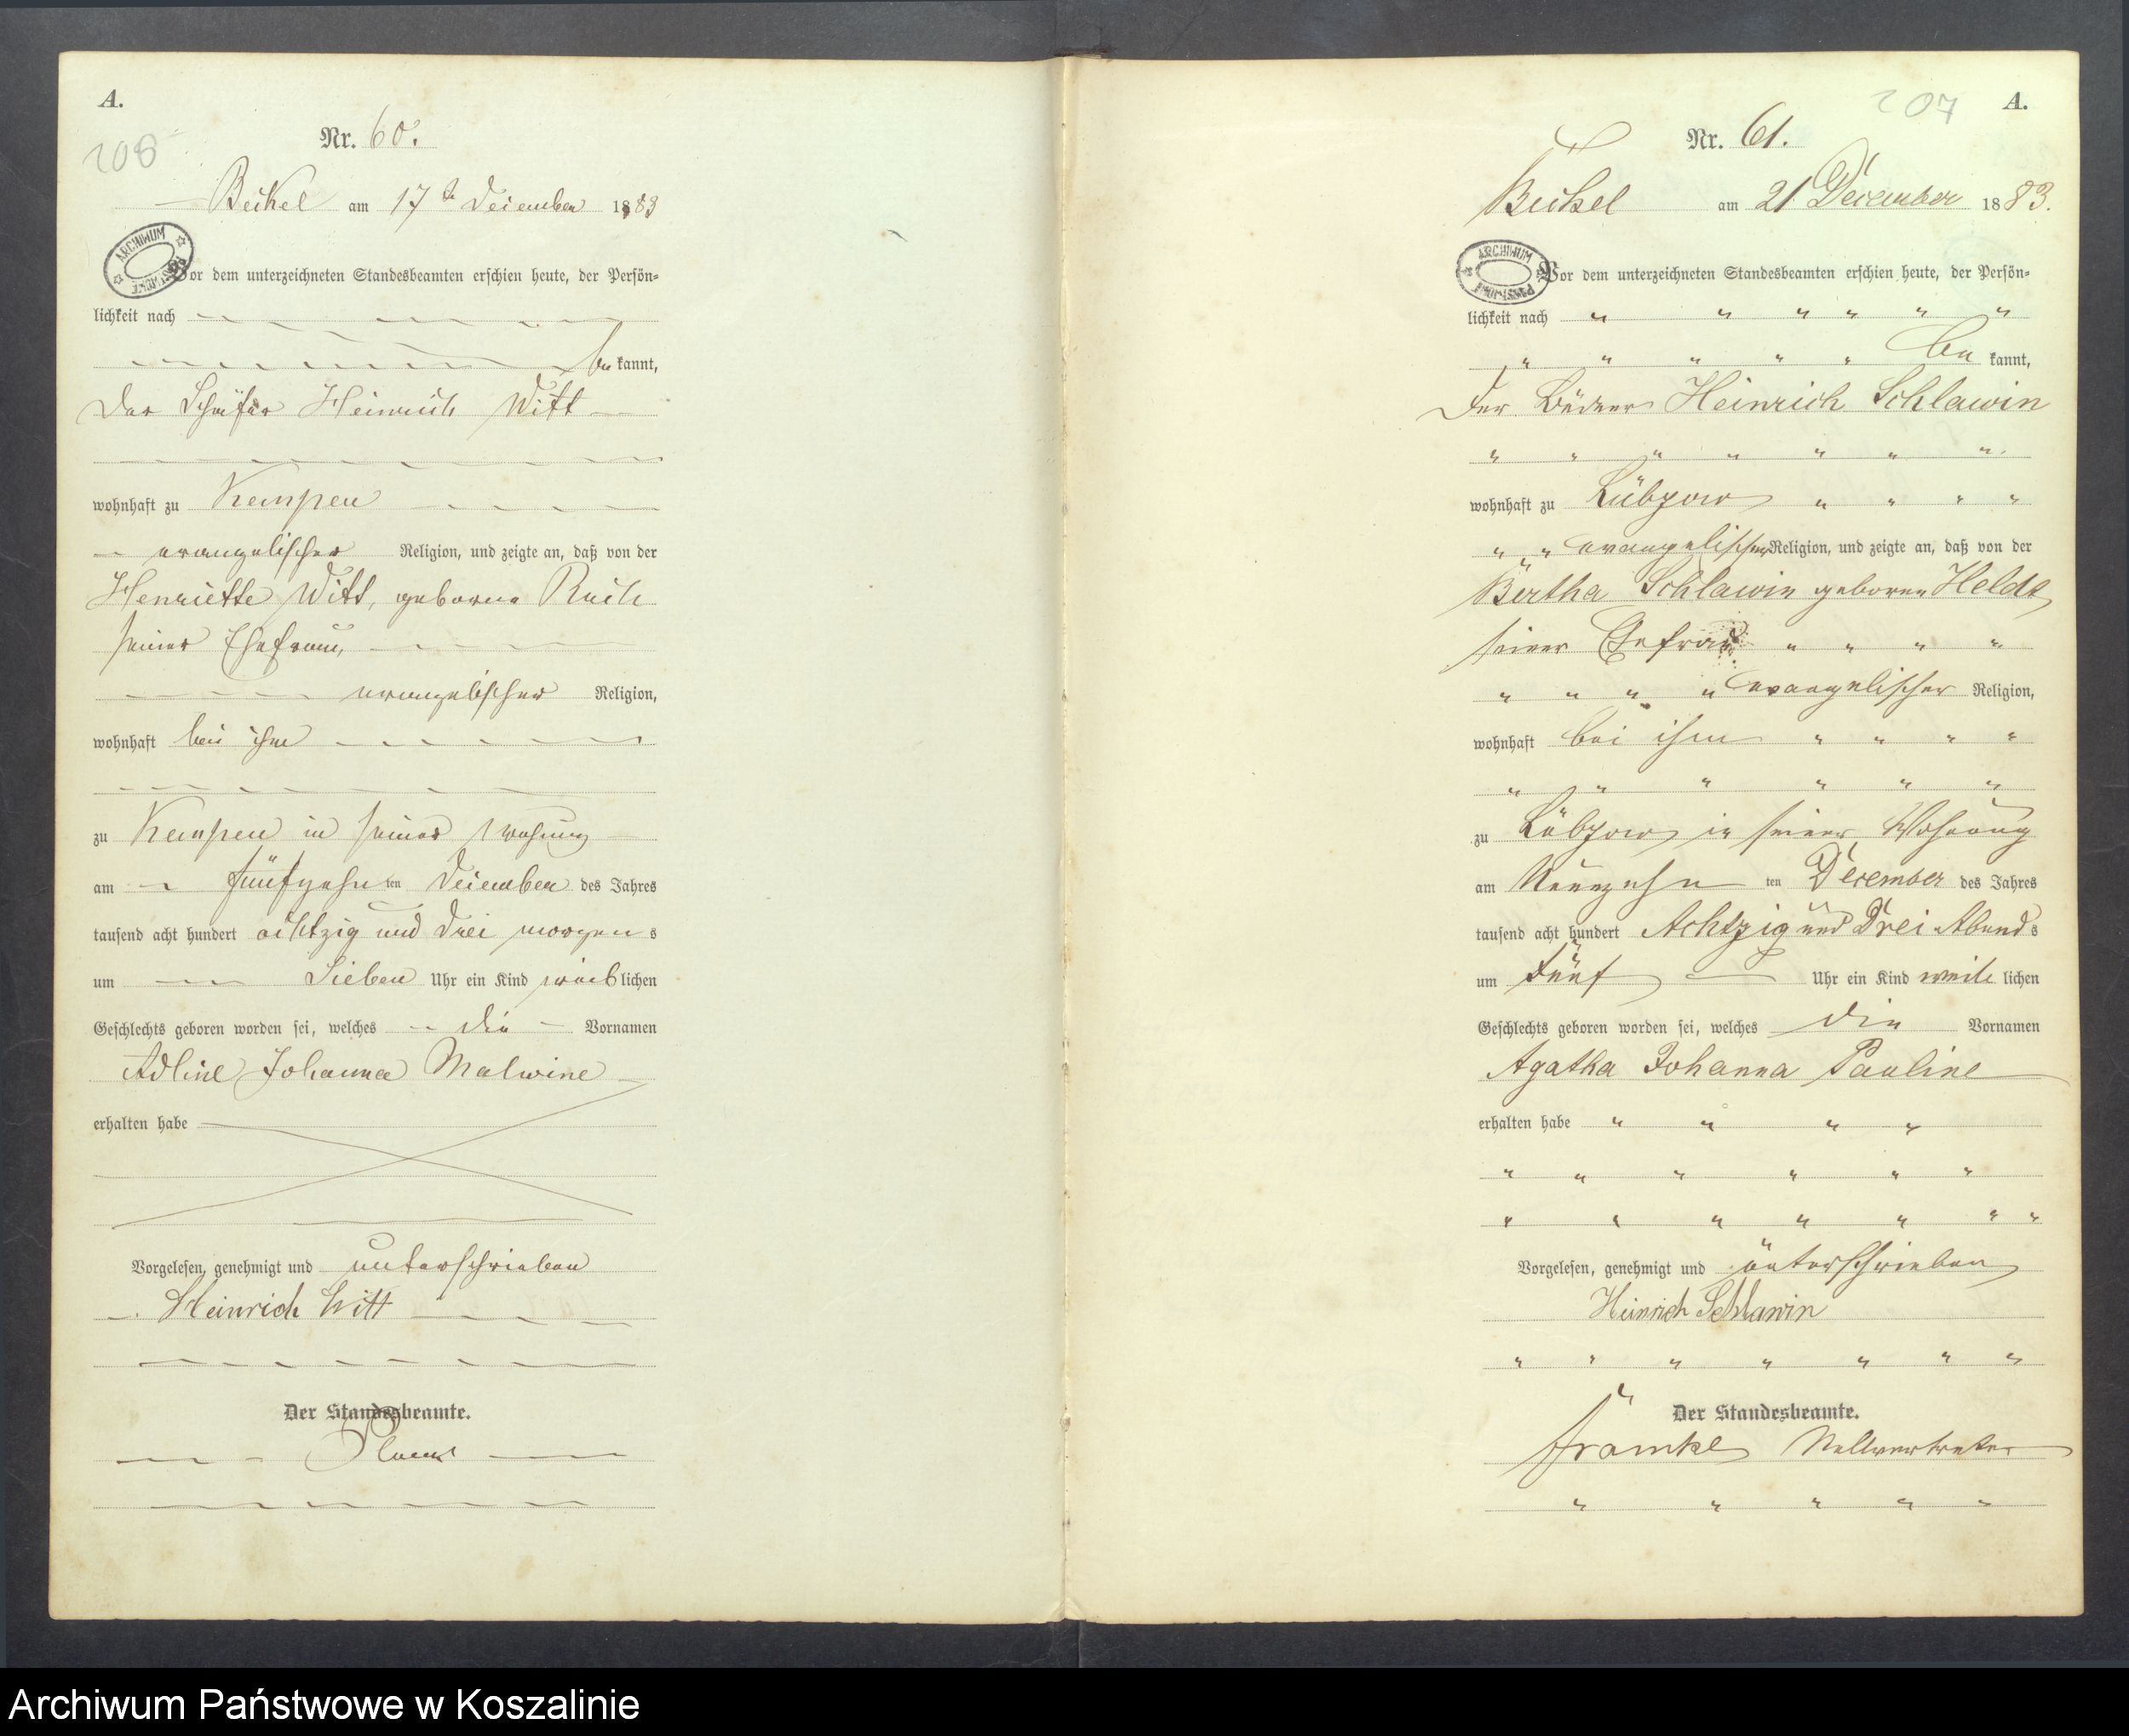 A.
208
Nr. 60.
Beikel am 17 ten December 1883
ARCHIWUM
Vor dem unterzeichneten Standesbeamten erschien heute, der Persön=
lichkeit nach
be kannt,
Der Schäfer Heinrich Witt
wohnhaft zu Kempen
evangelischer Religion, und zeigte an, daß von der
Henriette Witt, geborne
seiner Ehefrau,
evangelischer Religion,
wohnhaft bei ihm
zu Kempen in seiner Wohnung
am fünfzehn ten December des Jahres
tausend acht hundert achtzig und drei morgens
um Sieben Uhr ein Kind weiblichen
Geschlechts geboren worden sei, welches die Vornamen
Adline Johanna Malwine
erhalten habe
Vorgelesen, genehmigt und unterschrieben
Heinrich Witt
Der Standesbeamte.
207 A.
Nr. 61.
Beikel am 21 December 1883.
ARCHIWUM
Vor dem unterzeichneten Standesbeamten erschien heute, der Persön=
lichkeit nach " " " " " "
" " " " " be kannt,
Der Büdner Heinrich Schlawin
" " " " " " "
wohnhaft zu Lübzow " " " "
" " evangelischer Religion, und zeigte an, daß von der
Bertha Schlawin geboren Heldt
seiner Ehefrau " " " "
" " " " evangelischer Religion,
wohnhaft bei ihm " " " "
" " " " " "
zu Lübzow in seiner Wohnung
am Neunzehn ten December des Jahres
tausend acht hundert Achtzig und Drei Abends
um Fünf Uhr ein Kind weib lichen
Geschlechts geboren worden sei, welches die Vornamen
Agatha Johanna Pauline
erhalten habe " " " "
" " " " " "
" " " " " " "
Vorgelesen, genehmigt und unterschrieben
Heinrich Schlawin
" " " " " " "
Der Standesbeamte.
Framke Stellvertreter
" " " " "
Archiwum Państwowe w Koszalinie